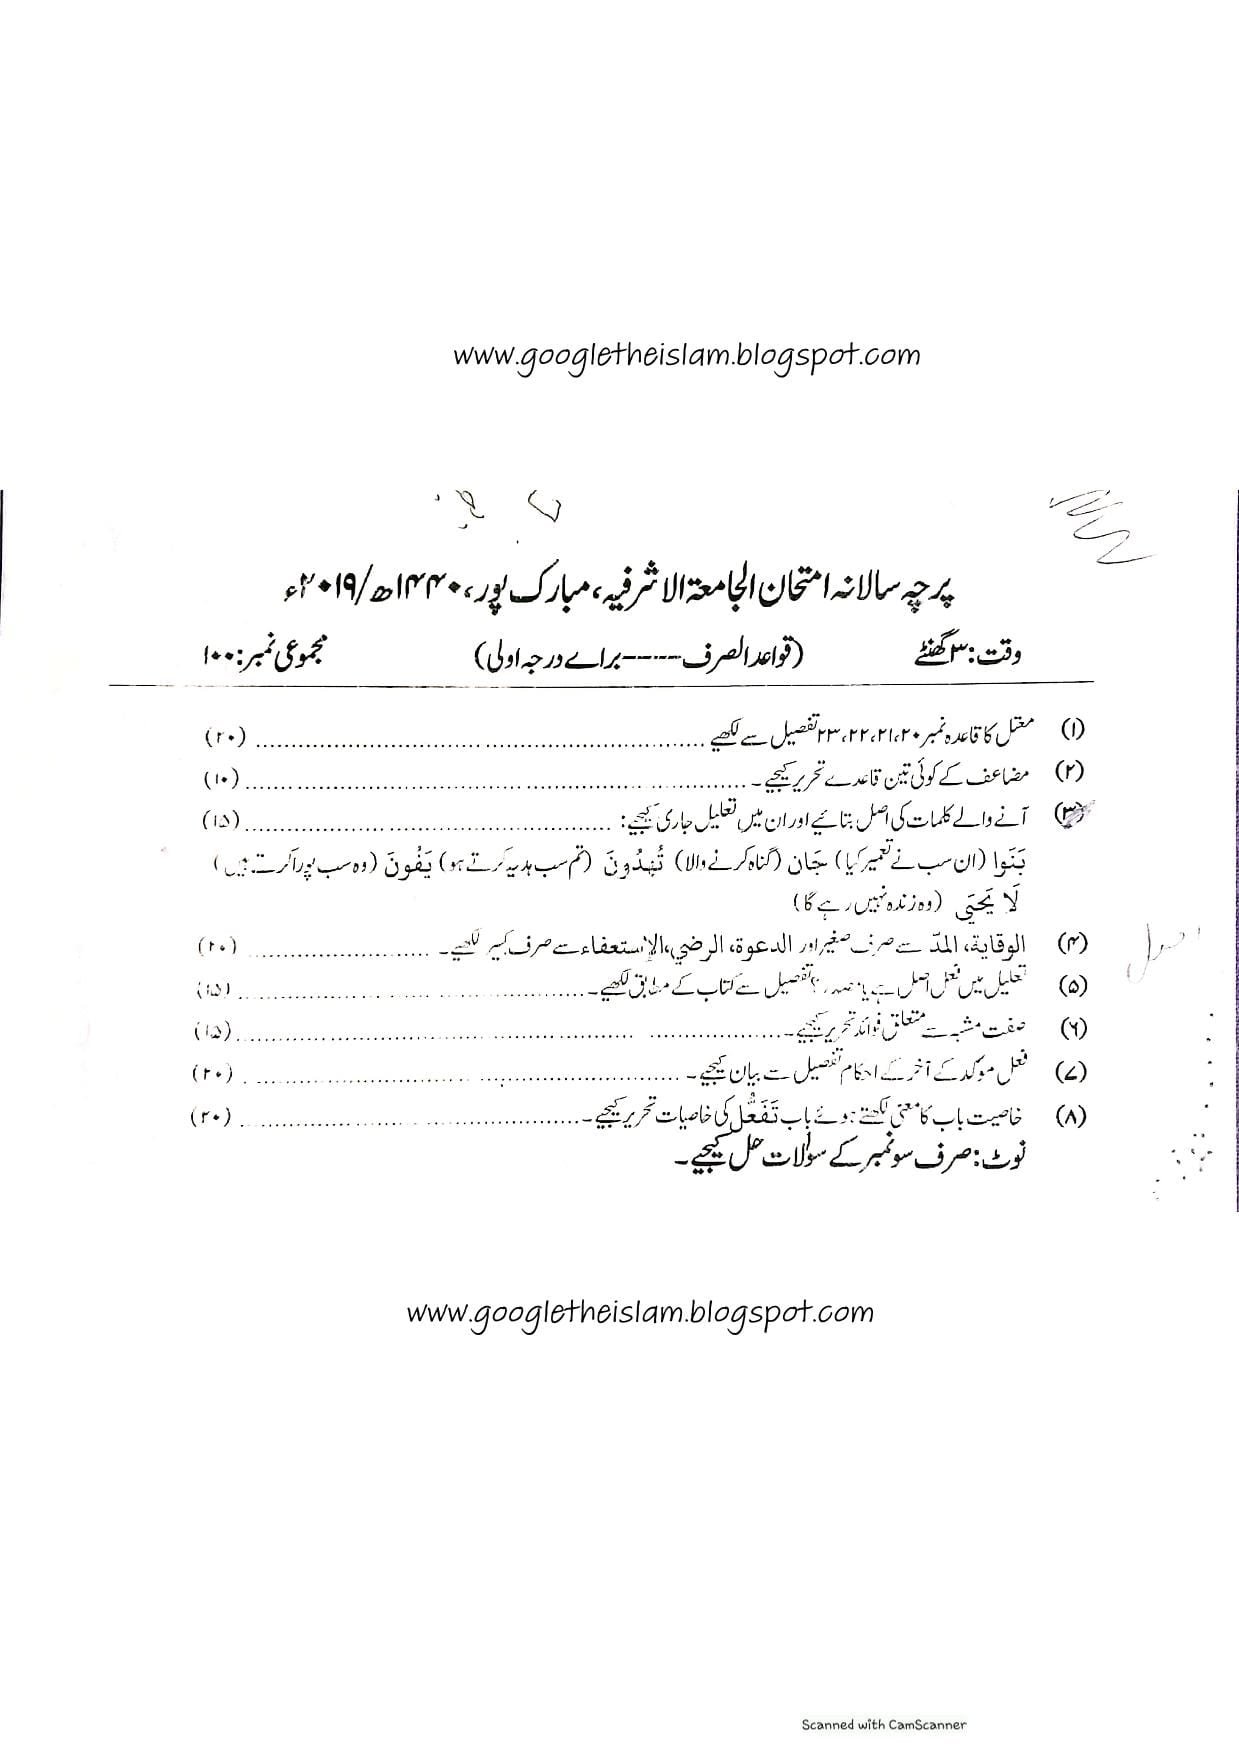 www.googletheislam.blogspot.com
پرچہ سالانہ امتحان الجامعۃ الاشرفیہ، مبارک پور، ۱۴۴۰ھ/۲۰۱۹ء
وقت: ۳ گھنٹے (قواعد الصرف-----براے درجہ اولی) مجموعی نمبر: ۱۰۰
(۱) معتل کا قاعدہ نمبر ۲۰، ۲۱، ۲۲، ۲۳ تفصیل سے لکھیے ........ (۲۰)
(۲) مضاعف کے کوئی تین قاعدے تحریر کیجیے۔ ........ (۱۰)
(۳) آنے والے کلمات کی اصل بتائیے اور ان میں تعلیل جاری کیجیے: ........ (۱۵)
بَنَوا (ان سب نے تعمیر کیا) جَان (گناہ کرنے والا) تُهدُونَ (تم سب ہدیہ کرتے ہو) يَفُونَ (وہ سب پورا کرتے ہیں)
لَا يَحْيَى (وہ زندہ نہیں رہے گا)
(۴) الوقاية، المدّ سے صرف صغیر اور الدعوة، الرضي، الإستعفاء سے صرف کبیر لکھیے۔ ........ (۲۰)
(۵) تعلیل میں فعل اصل ہے یا مصدر؟ تفصیل سے کتاب کے مطابق لکھیے۔ ........ (۱۵)
(۶) صفت مشبہ سے متعلق فوائد تحریر کیجیے۔ ........ (۱۵)
(۷) فعل موکد کے آخر کے احکام تفصیل سے بیان کیجیے۔ ........ (۲۰)
(۸) خاصیت باب کا معنی لکھتے ہوئے باب تَفَعُّل کی خاصیات تحریر کیجیے۔ ........ (۲۰)
نوٹ: صرف سو نمبر کے سوالات حل کیجیے۔
www.googletheislam.blogspot.com
Scanned with CamScanner